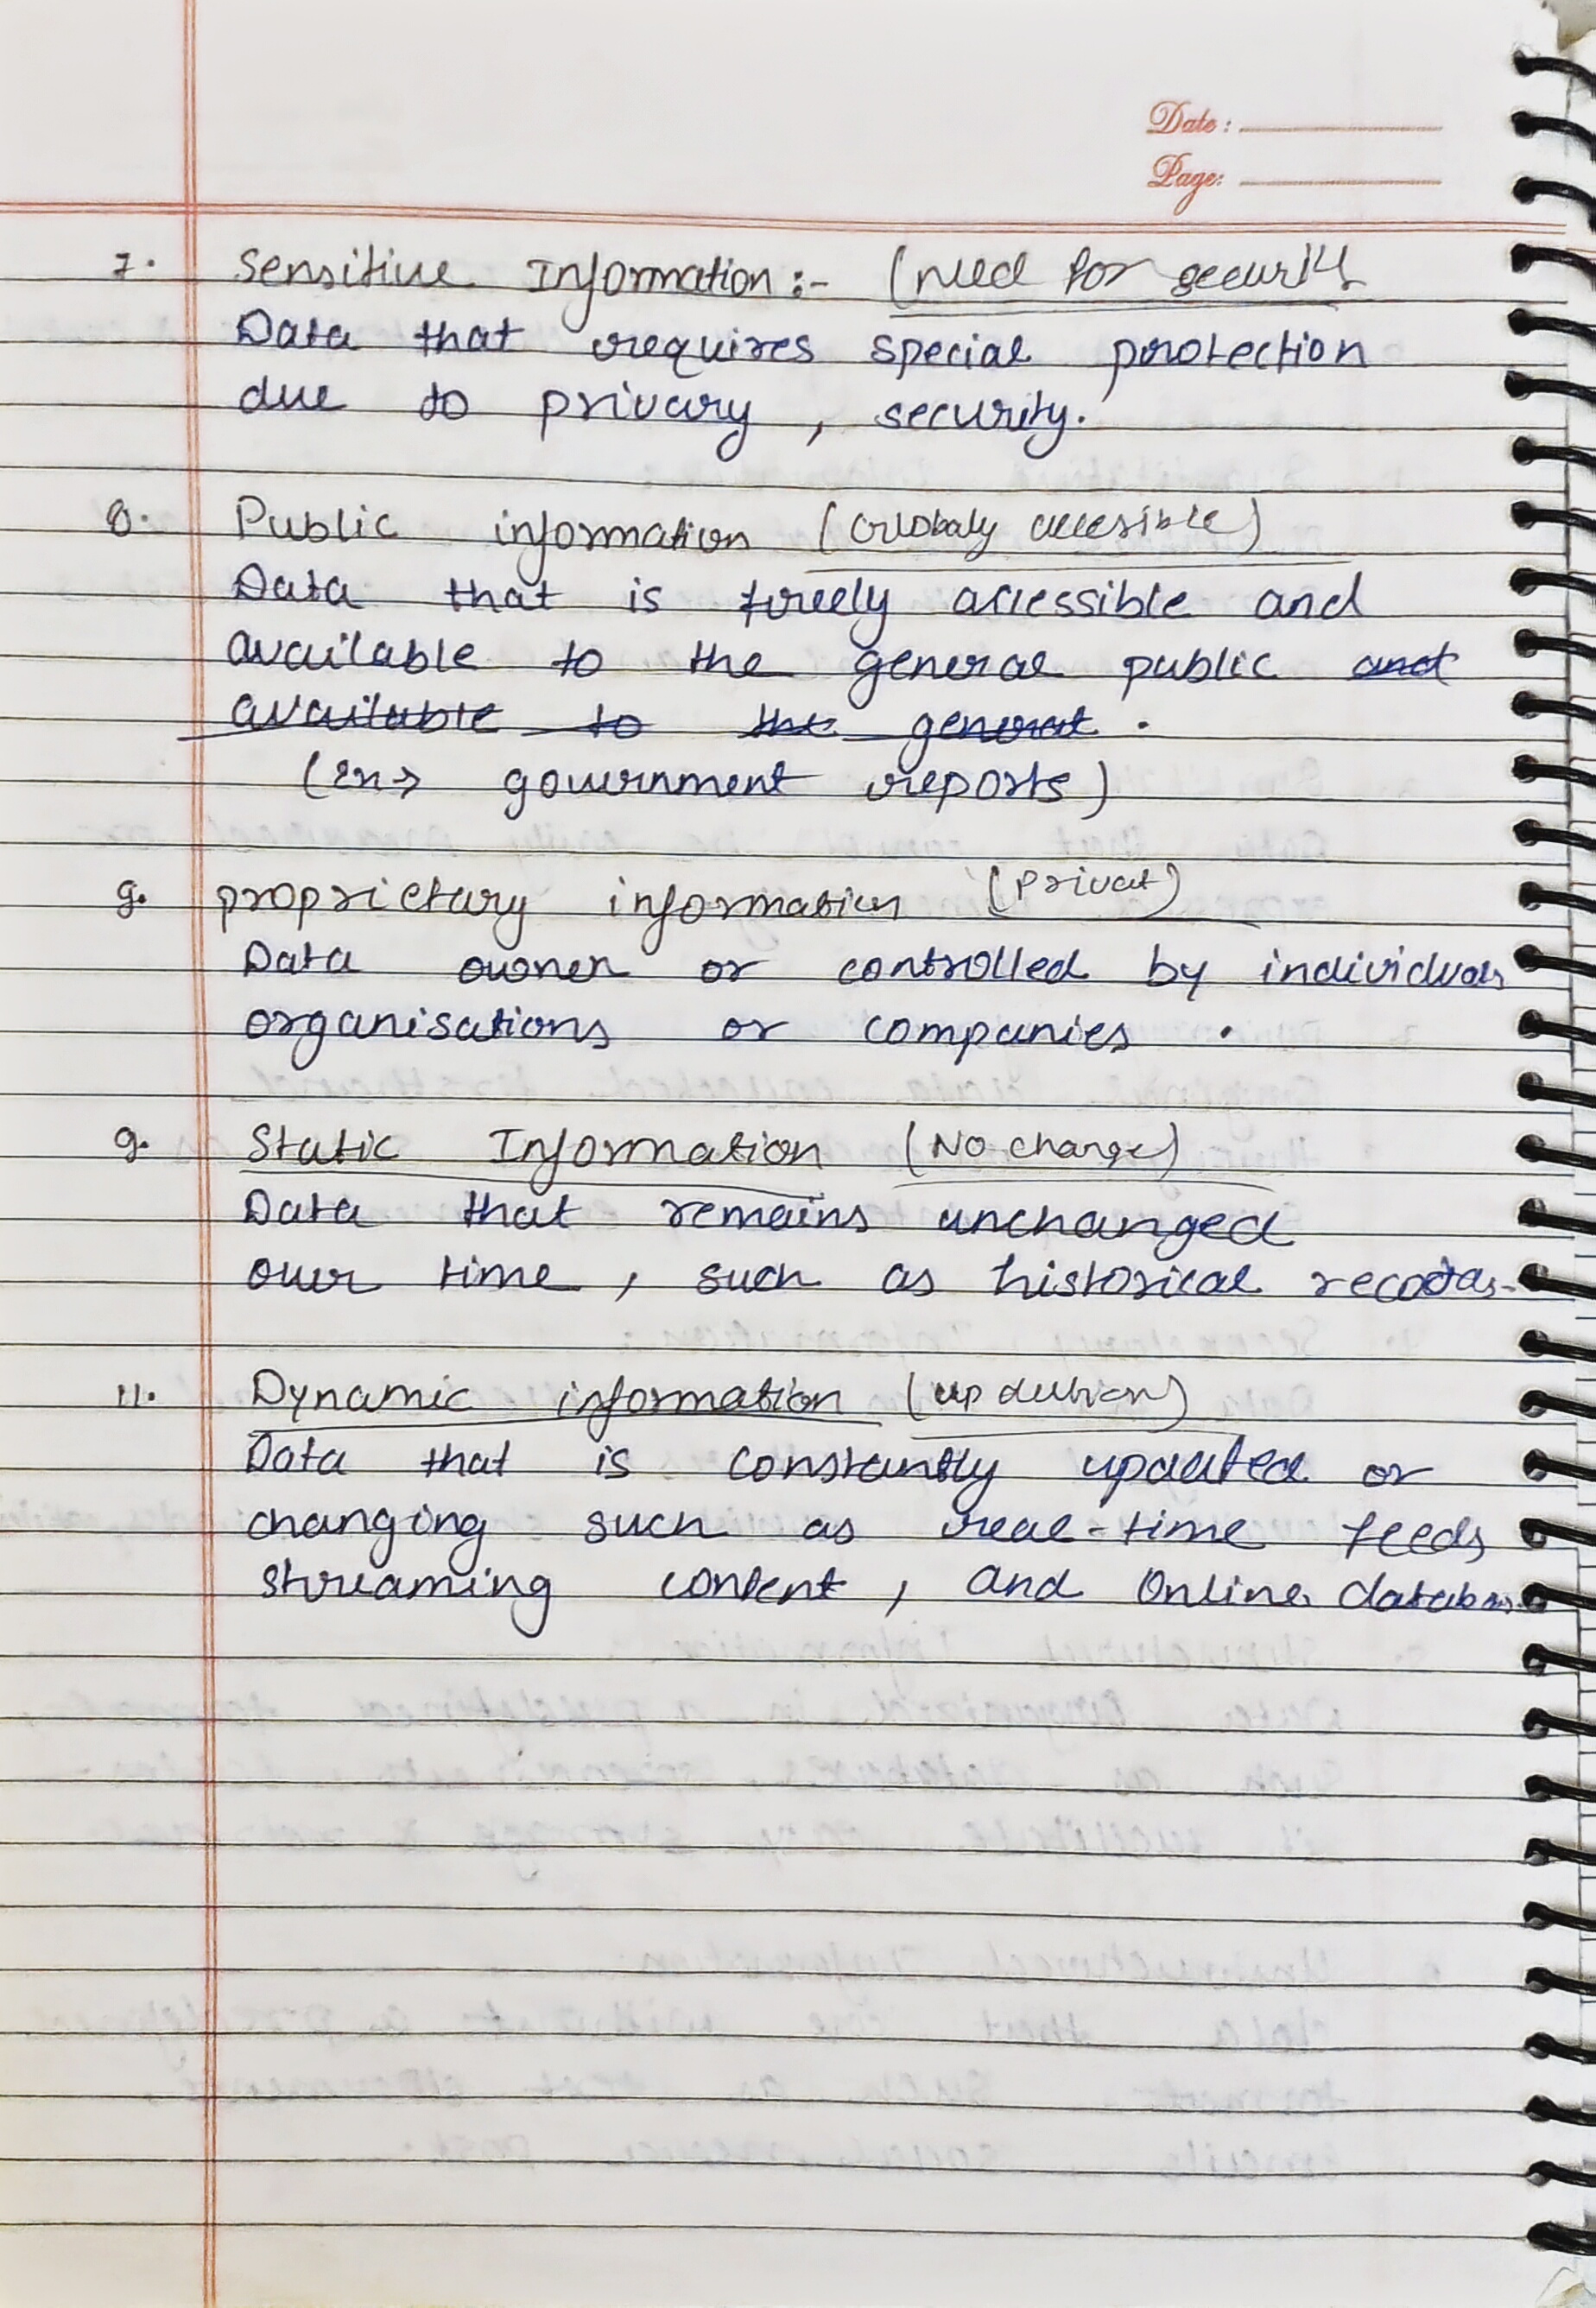 Date:
Page:
7. Sensitive Information :- (need for security
Data that requires special protection
due to privacy, security.
8. Public information (Globaly accesible)
Data that is freely accessible and
available to the general public and
available to the general .
(Ex→ government reports)
9. proprietary information (Privat)
Data owner or controlled by individuals
organisations or companies .
9. Static Information (No change)
Data that remains unchanged
over time, such as historical records.
11. Dynamic information (updution)
Data that is constantly updated or
changing such as real-time feeds
streaming content, and Online